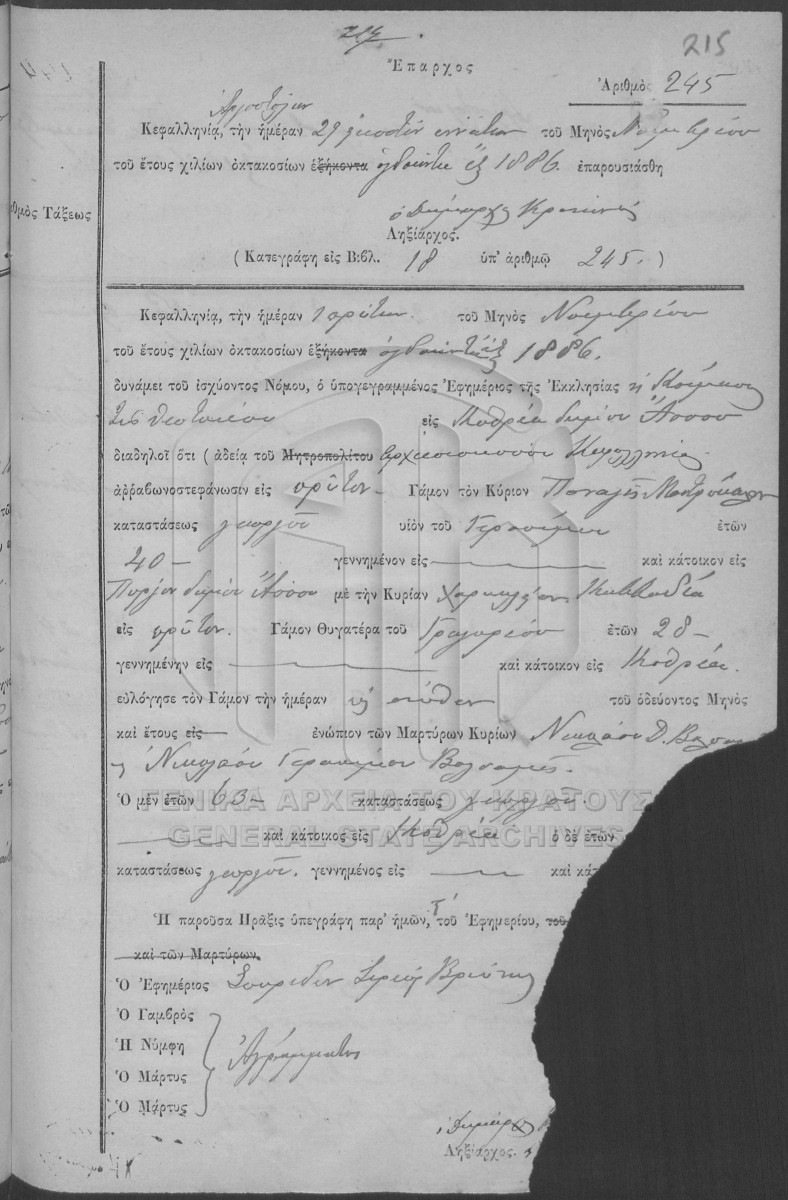 214
215
Ἔπαρχος
Ἀριθμὸς 245
Κεφαλληνία, τὴν ἡμέραν 29 εἰκοστὴν ἐννάτην τοῦ Μηνὸς Νοεμβρίου
τοῦ ἔτους χιλίων ὀκτακοσίων ἑξήκοντα ὀγδοήκοντα ἕξ 1886. ἐπαρουσιάσθη
ὁ Δήμαρχος Κραναίας
Ληξίαρχος.
θμὸς Τάξεως
(Κατεγράφη εἰς Βιβλ. 18 ὑπ' ἀριθμῷ 245.)
Κεφαλληνίᾳ, τὴν ἡμέραν 1 πρώτην τοῦ Μηνὸς Νοεμβρίου
τοῦ ἔτους χιλίων ὀκτακοσίων ἑξήκοντα ὀγδοήκοντα ἕξ 1886.
δυνάμει τοῦ ἰσχύοντος Νόμου, ὁ ὑπογεγραμμένος Ἐφημέριος τῆς Ἐκκλησίας ἡ Κοίμησις
τῆς Θεοτόκου εἰς Κοθρέα δήμου Ἄσσου
διαδηλοῖ ὅτι (ἀδείᾳ τοῦ Μητροπολίτου Ἀρχιεπισκόπου Κεφαλληνίας
ἀῤῥαβωνοστεφάνωσιν εἰς πρῶτον Γάμον τὸν Κύριον Παναγῆ
καταστάσεως γεωργοῦ υἱὸν τοῦ Γερασίμου ἐτῶν
40 γεννημένον εἰς καὶ κάτοικον εἰς
δήμου Ἄσσου μὲ τὴν Κυρίαν
εἰς πρῶτον. Γάμον Θυγατέρα τοῦ Γρηγορίου ἐτῶν 28
γεννημένην εἰς καὶ κάτοικον εἰς Κοθρέα.
εὐλόγησε τὸν Γάμον τὴν ἡμέραν ὡς ἄνωθεν τοῦ ὁδεύοντος Μηνὸς
καὶ ἔτους εἰς ἐνώπιον τῶν Μαρτύρων Κυρίων Νικολάου Δ.
Νικολάου Γερασίμου Βαλσαμῆς.
Ὁ μὲν ἐτῶν 63 καταστάσεως γεωργοῦ.
καὶ κάτοικος εἰς Κοθρέα ὁ δὲ ἐτῶν
καταστάσεως γεωργοῦ. γεννημένος εἰς καὶ κάτ
Ἡ παροῦσα Πρᾶξις ὑπεγράφη παρ' ἡμῶν, τοῦ Ἐφημερίου, τοῦ
καὶ τῶν Μαρτύρων.
Ὁ Ἐφημέριος Σπυρίδων Ἱερεὺς
Ὁ Γαμβρὸς
Ἡ Νύμφη Ἀγράμματοι
Ὁ Μάρτυς
Ὁ Μάρτυς
ὁ Δήμαρχος
Ληξίαρχος.
ΓΕΝΙΚΑ ΑΡΧΕΙΑ ΤΟΥ ΚΡΑΤΟΥΣ
GENERAL STATE ARCHIVES